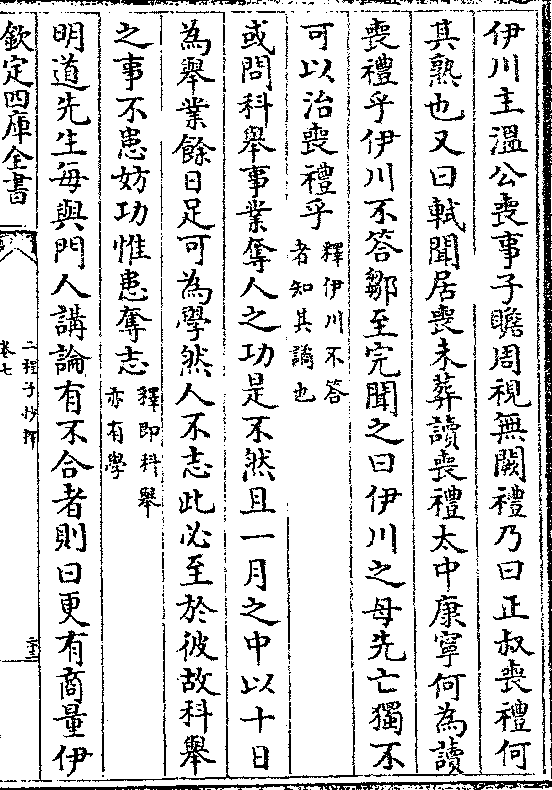 伊川主溫公喪事子瞻周視無闕禮乃曰正叔喪禮何
其熟也又曰軾聞居喪未葬讀喪禮太中康寧何為讀
喪禮乎伊川不答鄒至完聞之曰伊川之母先亡獨不
可以治喪禮乎
釋伊川不答
者知其譎也
或問科舉事業奪人之功是不然且一月之中以十日
為舉業餘日足可為學然人不志此必至於彼故科舉
之事不患妨功惟患奪志
釋即科舉
亦有學
明道先生每與門人講論有不合者則曰更有商量伊
欽定四庫全書
二程子抄釋
卷七